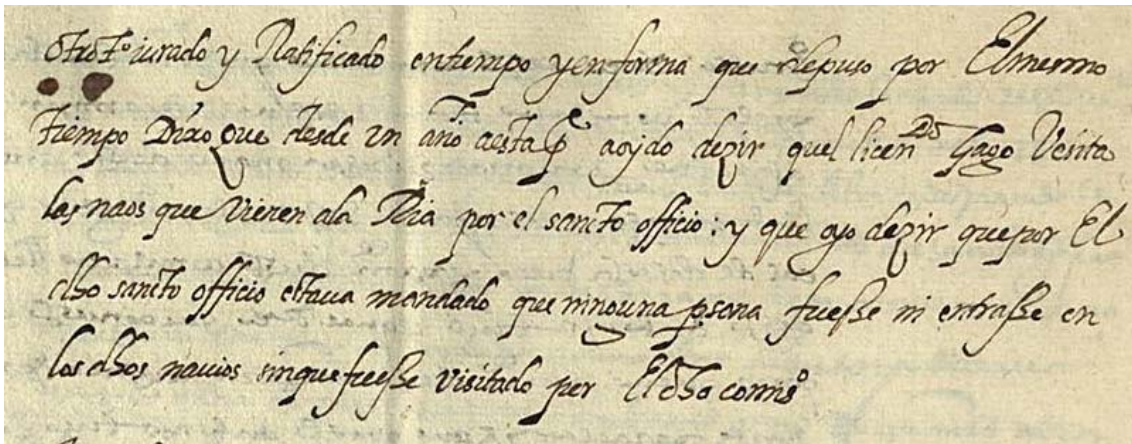 otro tº jurado y Ratificado entiempo yenforma que depuso por Elmermo
tiempo Dixo que desde un año aesta pᵉ aoydo dezir quel licenᵈᵒ Gago Vesita
las naos que vienen ala Ria por el sancto officio: y que oyo dezir que por El
dho sancto officio estava mandado que ninguna psona fuesse ni entrasse en
los dhos navios sinque fuesse visitado por El dho comisº